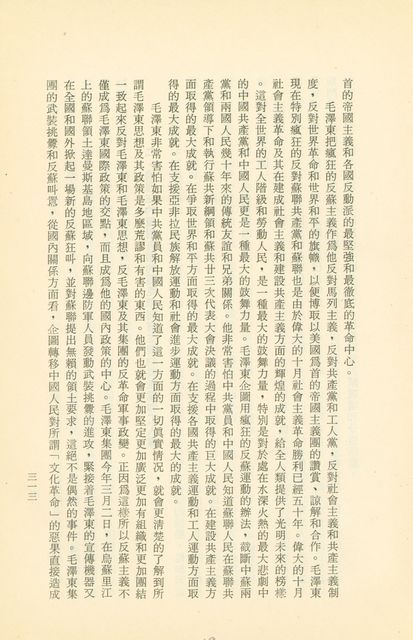 首的帝國主義和各國反動派的最堅強和最徹底的革命中心。
毛澤東把瘋狂的反蘇主義作爲他反對馬列主義，反對共產黨和工人黨，反對社會主義和共產主義制
度，反對世界革命和世界和平的旗幟，以便博取以美國爲首的帝國主義團的讚賞，諒解和合作。毛澤東
現在特別瘋狂的反對蘇聯共產黨和蘇聯也是由於偉大的十月社會主義革命勝利已經五十年。偉大的十月
社會主義革命及其在建成社會主義和建設共產主義方面的輝煌的成就，給全人類提供了光明未來的榜樣
。這對全世界的工人階級和勞動人民，是一種最大的鼓舞力量，特別是對於處在水深火熱的最大悲劇中
的中國共產黨和中國人民更是一種最大的鼓舞力量。毛澤東企圖用瘋狂的反蘇運動的辦法，截斷中蘇兩
黨和兩國人民幾十年來的傳統友誼和兄弟關係。他非常害怕中共黨員和中國人民知道蘇聯人民在蘇聯共
產黨領導下和執行蘇共新綱領和蘇共廿三次代表大會決議的過程中取得的巨大成就。在建設共產主義方
面取得的最大成就。在爭取世界和平方面取得的最大成就。在支援各國共產主義運動和工人運動方面取
得的最大成就。在支援亞非拉民族解放運動和社會進步運動方面取得的最大成就。
毛澤東非常害怕如果中共黨員和中國人民知道了這一方面的一切眞實情况，就會更清楚的了解到所
謂毛澤東思想及其政策是多麽荒謬和有害的東西。他們也就會更加堅定更加廣泛更加有組織和更加團結
一致起來反對毛澤東和毛澤東思想，反毛澤東及其集團的反革命軍事政變。正因爲這樣所以反蘇主義不
僅成爲毛澤東國際政策的交點，而且成爲他的國內政策的中心。毛澤東集團今年三月二日，在烏蘇里江
上的蘇聯領土達曼斯基島地區域，向蘇聯邊防軍人員發動武裝挑釁的進攻，緊接着毛澤東的宣傳機器又
在全國和國外掀起一場新的反蘇狂叫，並對蘇聯提出無賴的領土要求，這絕不是偶然的事件。毛澤東集
團的武裝挑釁和反蘇叫囂，從國內關係方面看，企圖轉移中國人民對所謂「文化革命」的惡果直接造成
三一三